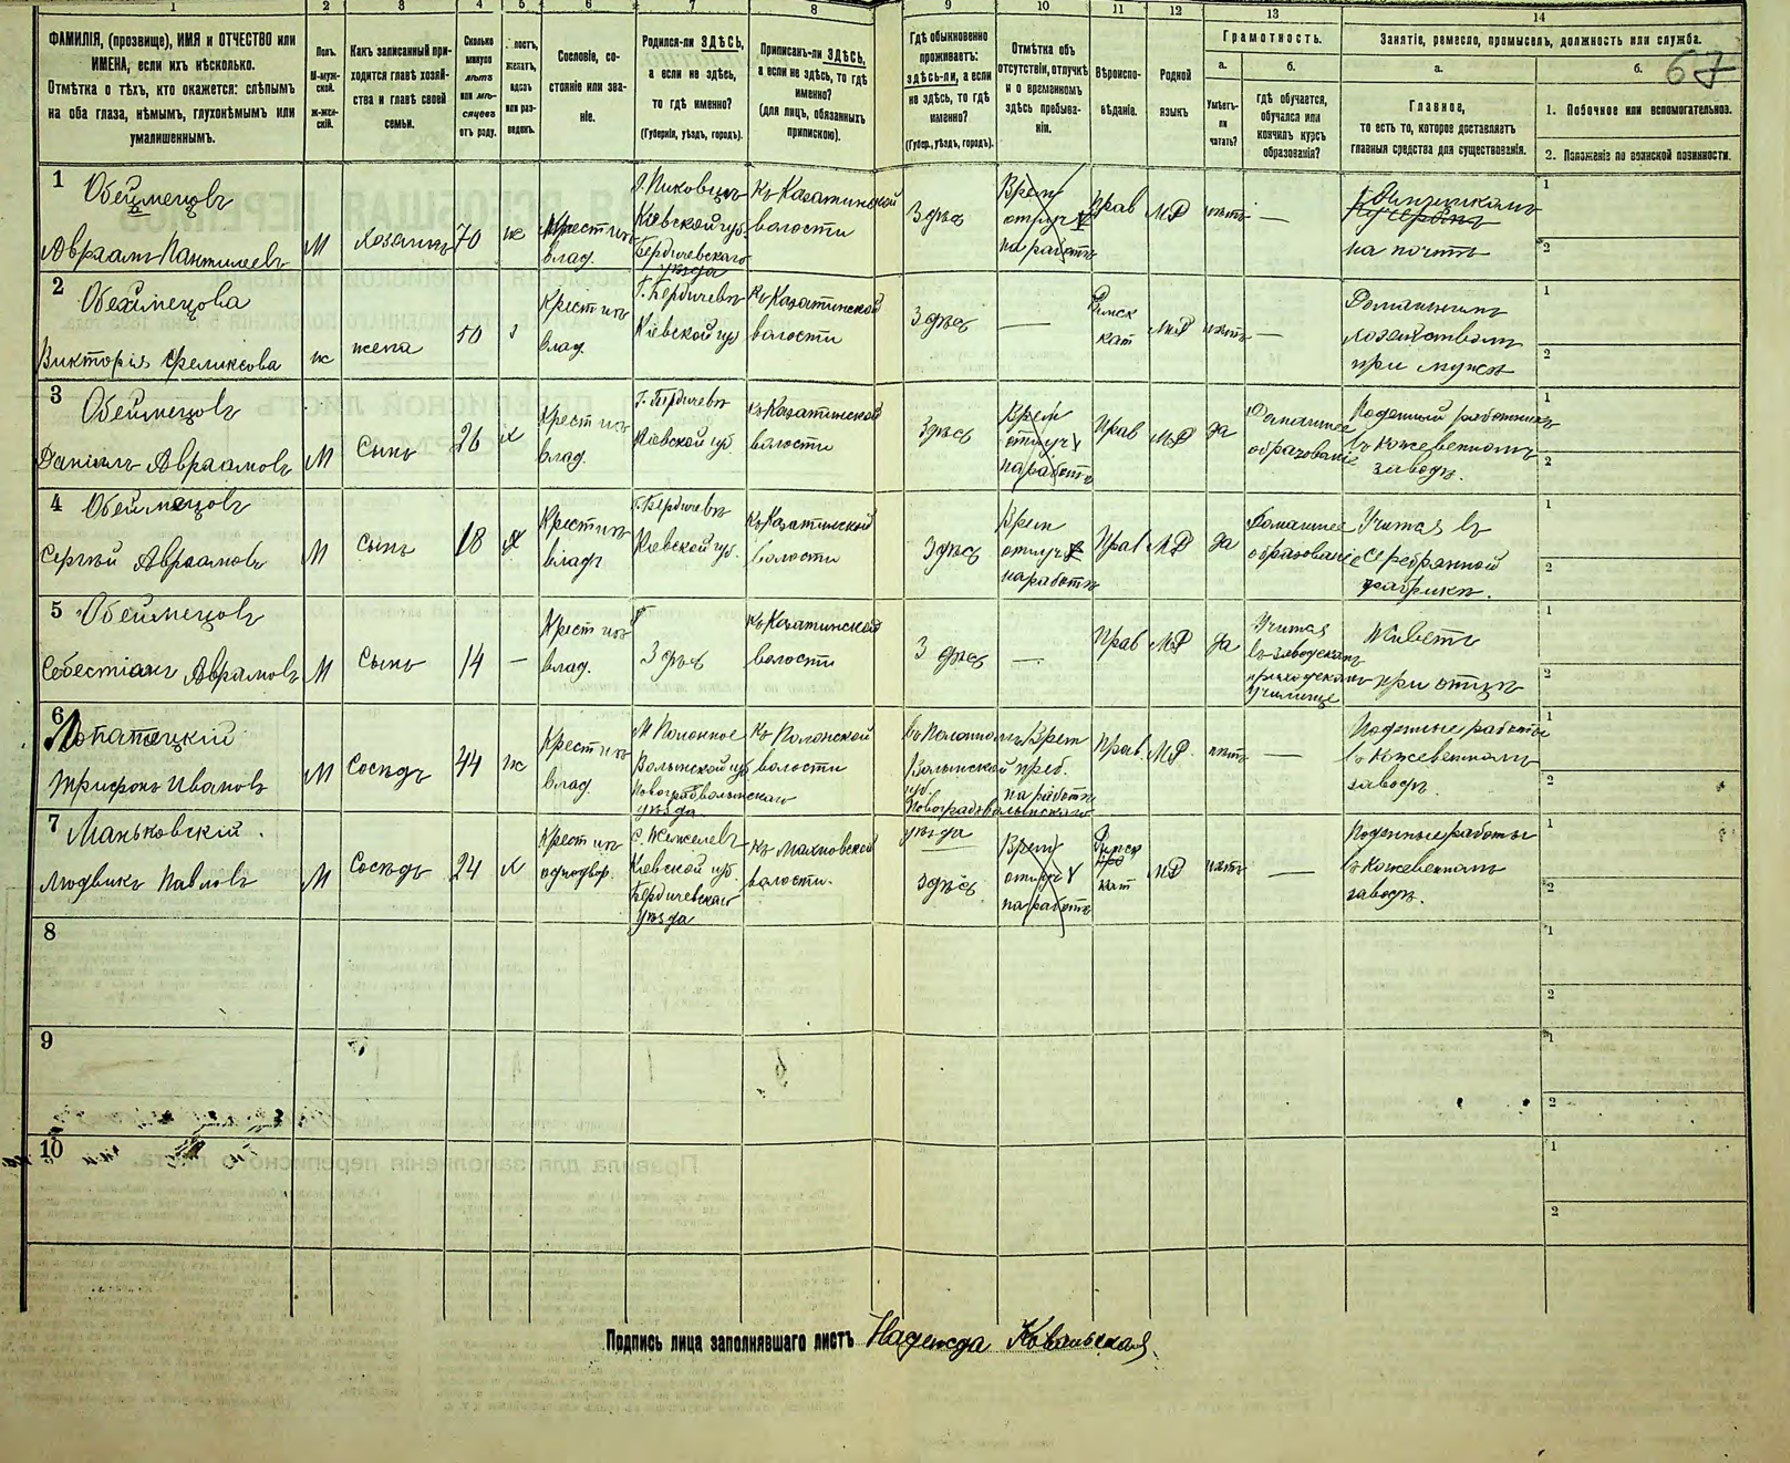 1 2 3 4 5 6 7 8 9 10 11 12 13 14
ФАМИЛІЯ, (прозвище), ИМЯ и ОТЧЕСТВО или
ИМЕНА, если ихъ нѣсколько.
Отмѣтка о тѣхъ, кто окажется: слѣпымъ
на оба глаза, нѣмымъ, глухонѣмымъ или
умалишеннымъ.
Полъ.
М-муж-
ской.
Ж-жен-
скій.
Какъ записанный при-
ходится главѣ хозяй-
ства и главѣ своей
семьи.
Сколько
минуло
лѣтъ
или мѣ-
сяцевъ
отъ роду.
лостъ,
женатъ,
вдовъ
или раз-
веденъ.
Сословіе, со-
стояніе или зва-
ніе.
Родился-ли ЗДѢСЬ,
а если не здѣсь,
то гдѣ именно?
(Губернія, уѣздъ, городъ).
Приписанъ-ли ЗДѢСЬ,
а если не здѣсь, то гдѣ
именно?
(для лицъ, обязанныхъ
припискою).
Гдѣ обыкновенно
проживаетъ:
здѣсь-ли, а если
не здѣсь, то гдѣ
именно?
(Губер., уѣздъ, городъ).
Отмѣтка объ
отсутствіи, отлучкѣ
и о временномъ
здѣсь пребыва-
ніи.
Вѣроиспо-
вѣданіе.
Родной
языкъ
Грамотность.
а.
Умѣетъ-
ли
читать?
б.
гдѣ обучается,
обучался или
кончилъ курсъ
образованія?
Занятіе, ремесло, промыселъ, должность или служба.
а.
Главное,
то есть то, которое доставляетъ
главныя средства для существованія.
б.
67
1. Побочное или вспомогательное.
2. Положеніе по воинской повинности.
1
Обеймецовъ
Авраамъ Пантилеевъ
М
Хозяинъ
70
ж
Крест изъ
влад.
Кіевской губ.
Бердичевскаго
уѣзда
Къ Казатинской
волости
Здѣсь
Врем
отлуч
на работѣ
Прав
МР
нѣтъ
—
на почтѣ
1
2
2
Обеймецова
Викторія Феликсова
ж
жена
50
Крест изъ
влад.
Г. Бердичевъ
Кіевской губ
Къ Казатинской
волости
Здѣсь
—
Римск
кат
нѣтъ
—
Домашнимъ
хозяйствомъ
при мужѣ
1
2
3
Обеймецовъ
Даніилъ Авраамовъ
М
Сынъ
26
х
Крест изъ
влад.
Г. Бердичевъ
Кіевской губ.
къ Казатинской
волости
Здѣсь
Врем
отлуч
на работѣ
Прав
МР
да
Домашнее
образованіе
Поденный работникъ
въ кожевенномъ
заводѣ.
1
2
4
Обеймецовъ
Сергѣй Авраамовъ
М
сынъ
18
х
Крест изъ
влад
Г. Бердичевъ
Кіевской губ.
Къ Казатинской
волости
Здѣсь
Врем
отлуч
на работѣ
Прав
МР
да
Домашнее
образованіе
Учится въ
серебрянной
фабрикѣ.
1
2
5
Обеймецовъ
Себестіанъ Аврамовъ
М
Сынъ
14
—
Крест изъ
влад.
Здѣсь
къ Казатинской
волости
Здѣсь
—
Прав
МР
да
Учится
приходскомъ
училище
Живетъ
при отцѣ
1
2
6
Лопатецкій
Трифонъ Ивановъ
М
Сосѣдъ
44
ж
Крест изъ
влад.
М Полонное
Волынской губ
Новоградволынскаго
уѣзда
Къ Полонской
волости
въ Полонномъ
Волынской
губ.
Новоградволынскаго
уѣзда
Врем
преб.
на работѣ
Прав.
МР.
нѣтъ
—
Поденные работы
въ кожевенномъ
заводѣ.
1
2
7
Маньковскій.
Людвикъ Павловъ
М
Сосѣдъ
24
х
Крест изъ
однодвор.
Кіевской губ.
Бердичевскаго
уѣзда
къ Махновской
волости.
здѣсь
Врем
отлуч
на работѣ
Римск
кат
нѣтъ
—
Поденные работы
въ кожевенномъ
заводѣ.
1
2
8
1
2
9
1
2
10
1
2
Подпись лица заполнявшаго листъ Надежда Ковальская.